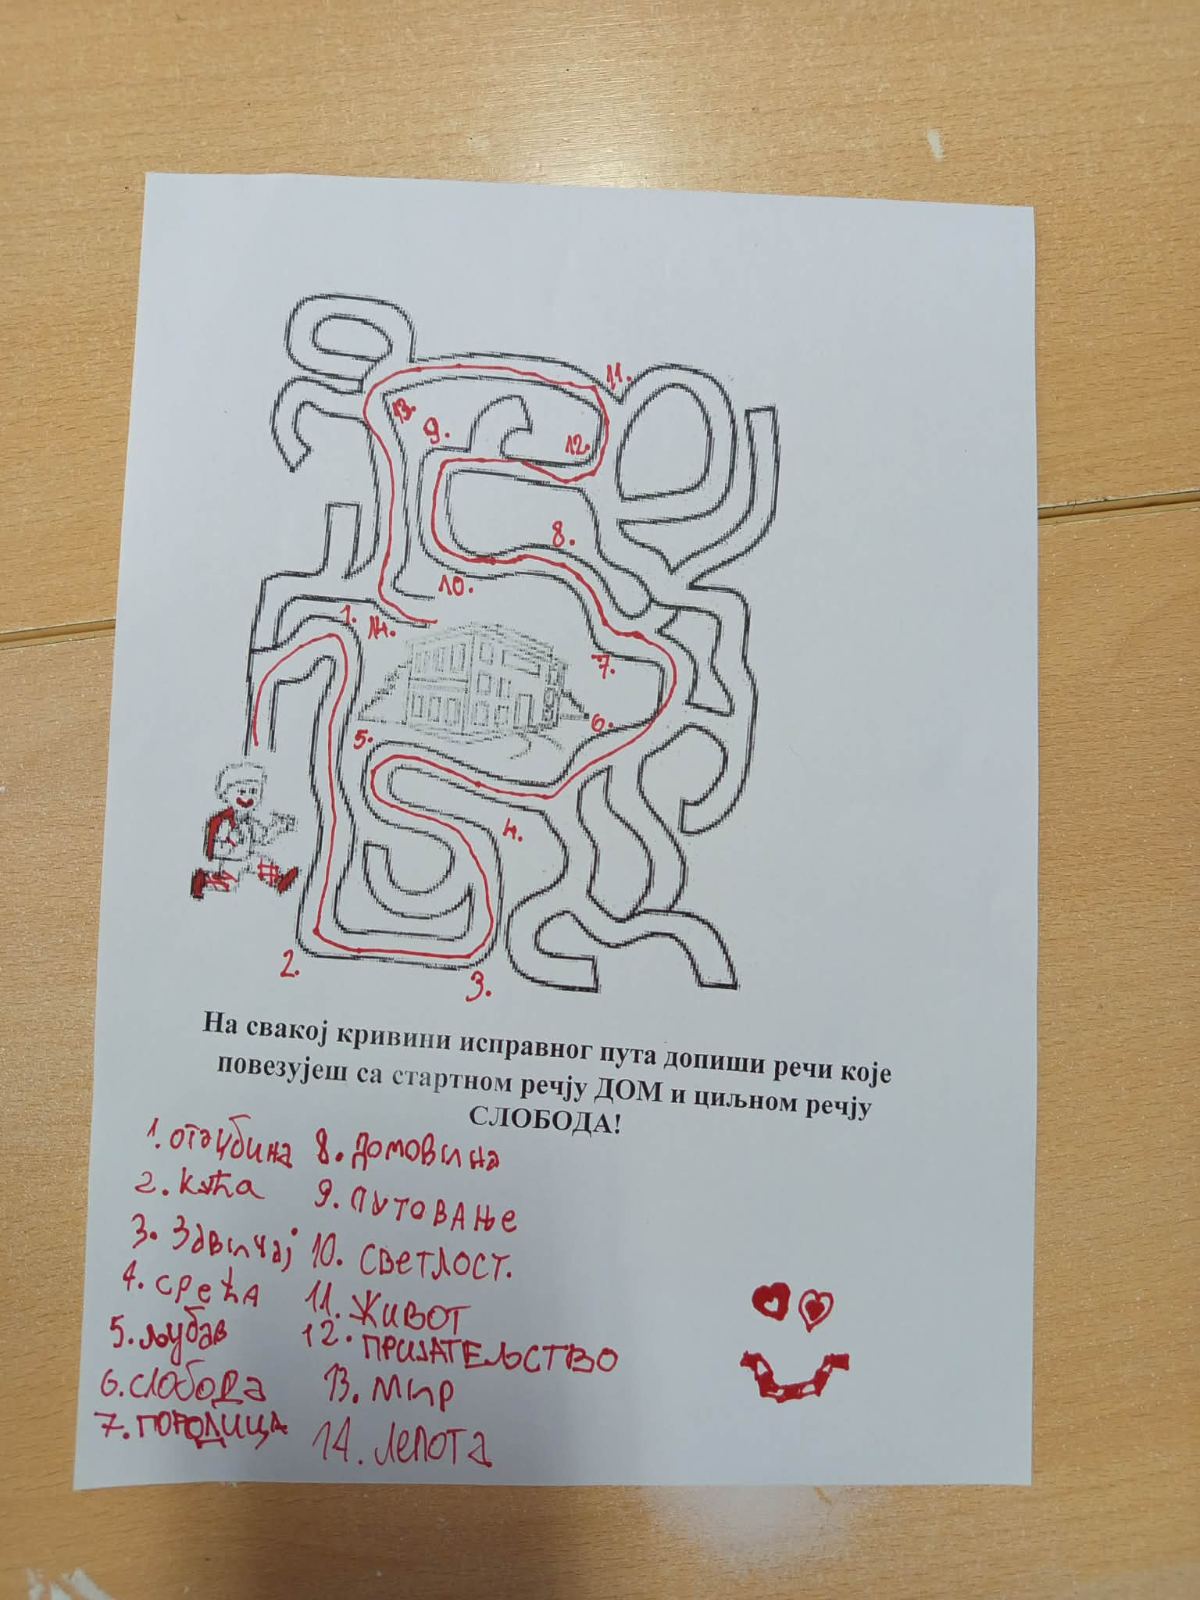 11.
13.
9.
12.
8.
10.
1.
14.
7.
6.
5.
4.
2.
3.
На свакој кривини исправног пута допиши речи које
повезујеш са стартном речју ДОМ и циљном речју
СЛОБОДА!
1. отаџбина
2. кућа
3. Завичај
4. срећа
5. љубав
6. слобода
7. ПОРОДИЦА
8. Домовина
9. ПУТОВАЊЕ
10. СВЕТЛОСТ.
11. ЖИВОТ
12. ПРИЈАТЕЉСТВО
13. МИР
14. ЛЕПОТА